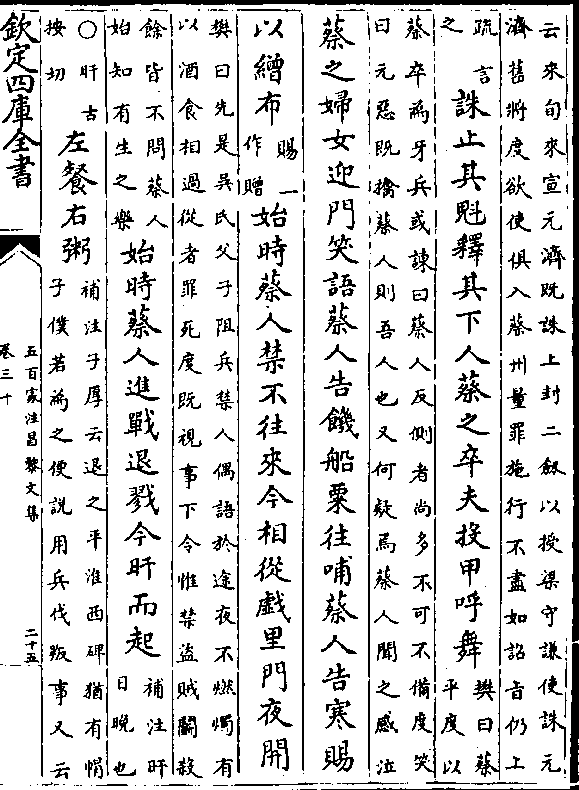 云來旬來宣元濟既誅上封二劔以授梁守謙使誅元
濟舊將度欲使俱入蔡州量罪施行不盡如詔旨仍上
疏言
之
誅止其魁釋其下人蔡之卒夫投甲呼舞
樊曰蔡
平度以
蔡卒為牙兵或諫曰蔡人反側者尚多不可不備度笑
曰元惡既擒蔡人則吾人也又何疑焉蔡人聞之感泣
蔡之婦女迎門笑語蔡人告饑船粟往哺蔡人告寒賜
以繒布
賜一
作贈
始時蔡人禁不往來今相從戲里門夜開
樊曰先是吳氏父子阻兵禁人偶語於途夜不燃燭有
以酒食相過從者罪死度既視事下令惟禁盜賊鬬殺
餘皆不問蔡人
始知有生之樂
始時蔡人進戰退戮今旰而起
補注旰
日晚也
○旰古
按切
左餐右粥
補注子厚云退之平淮西碑猶有㡌
子僕若為之便說用兵伐叛事又云
欽定四庫全書
五百家注昌黎文集
卷三十
二十五